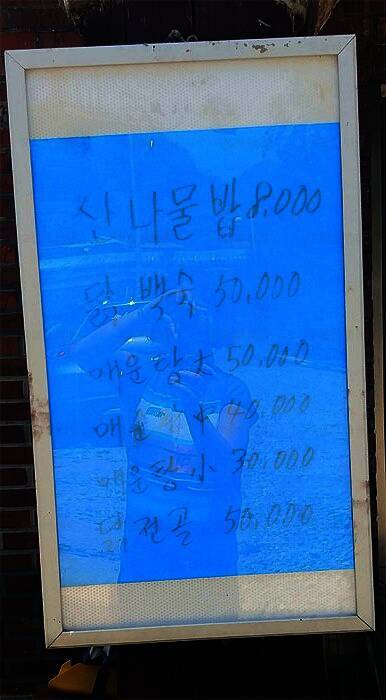 산나물밥 8,000
닭백숙 50,000
매운탕大 50,000
매운탕中 40,000
매운탕小 30,000
닭전골 50,000